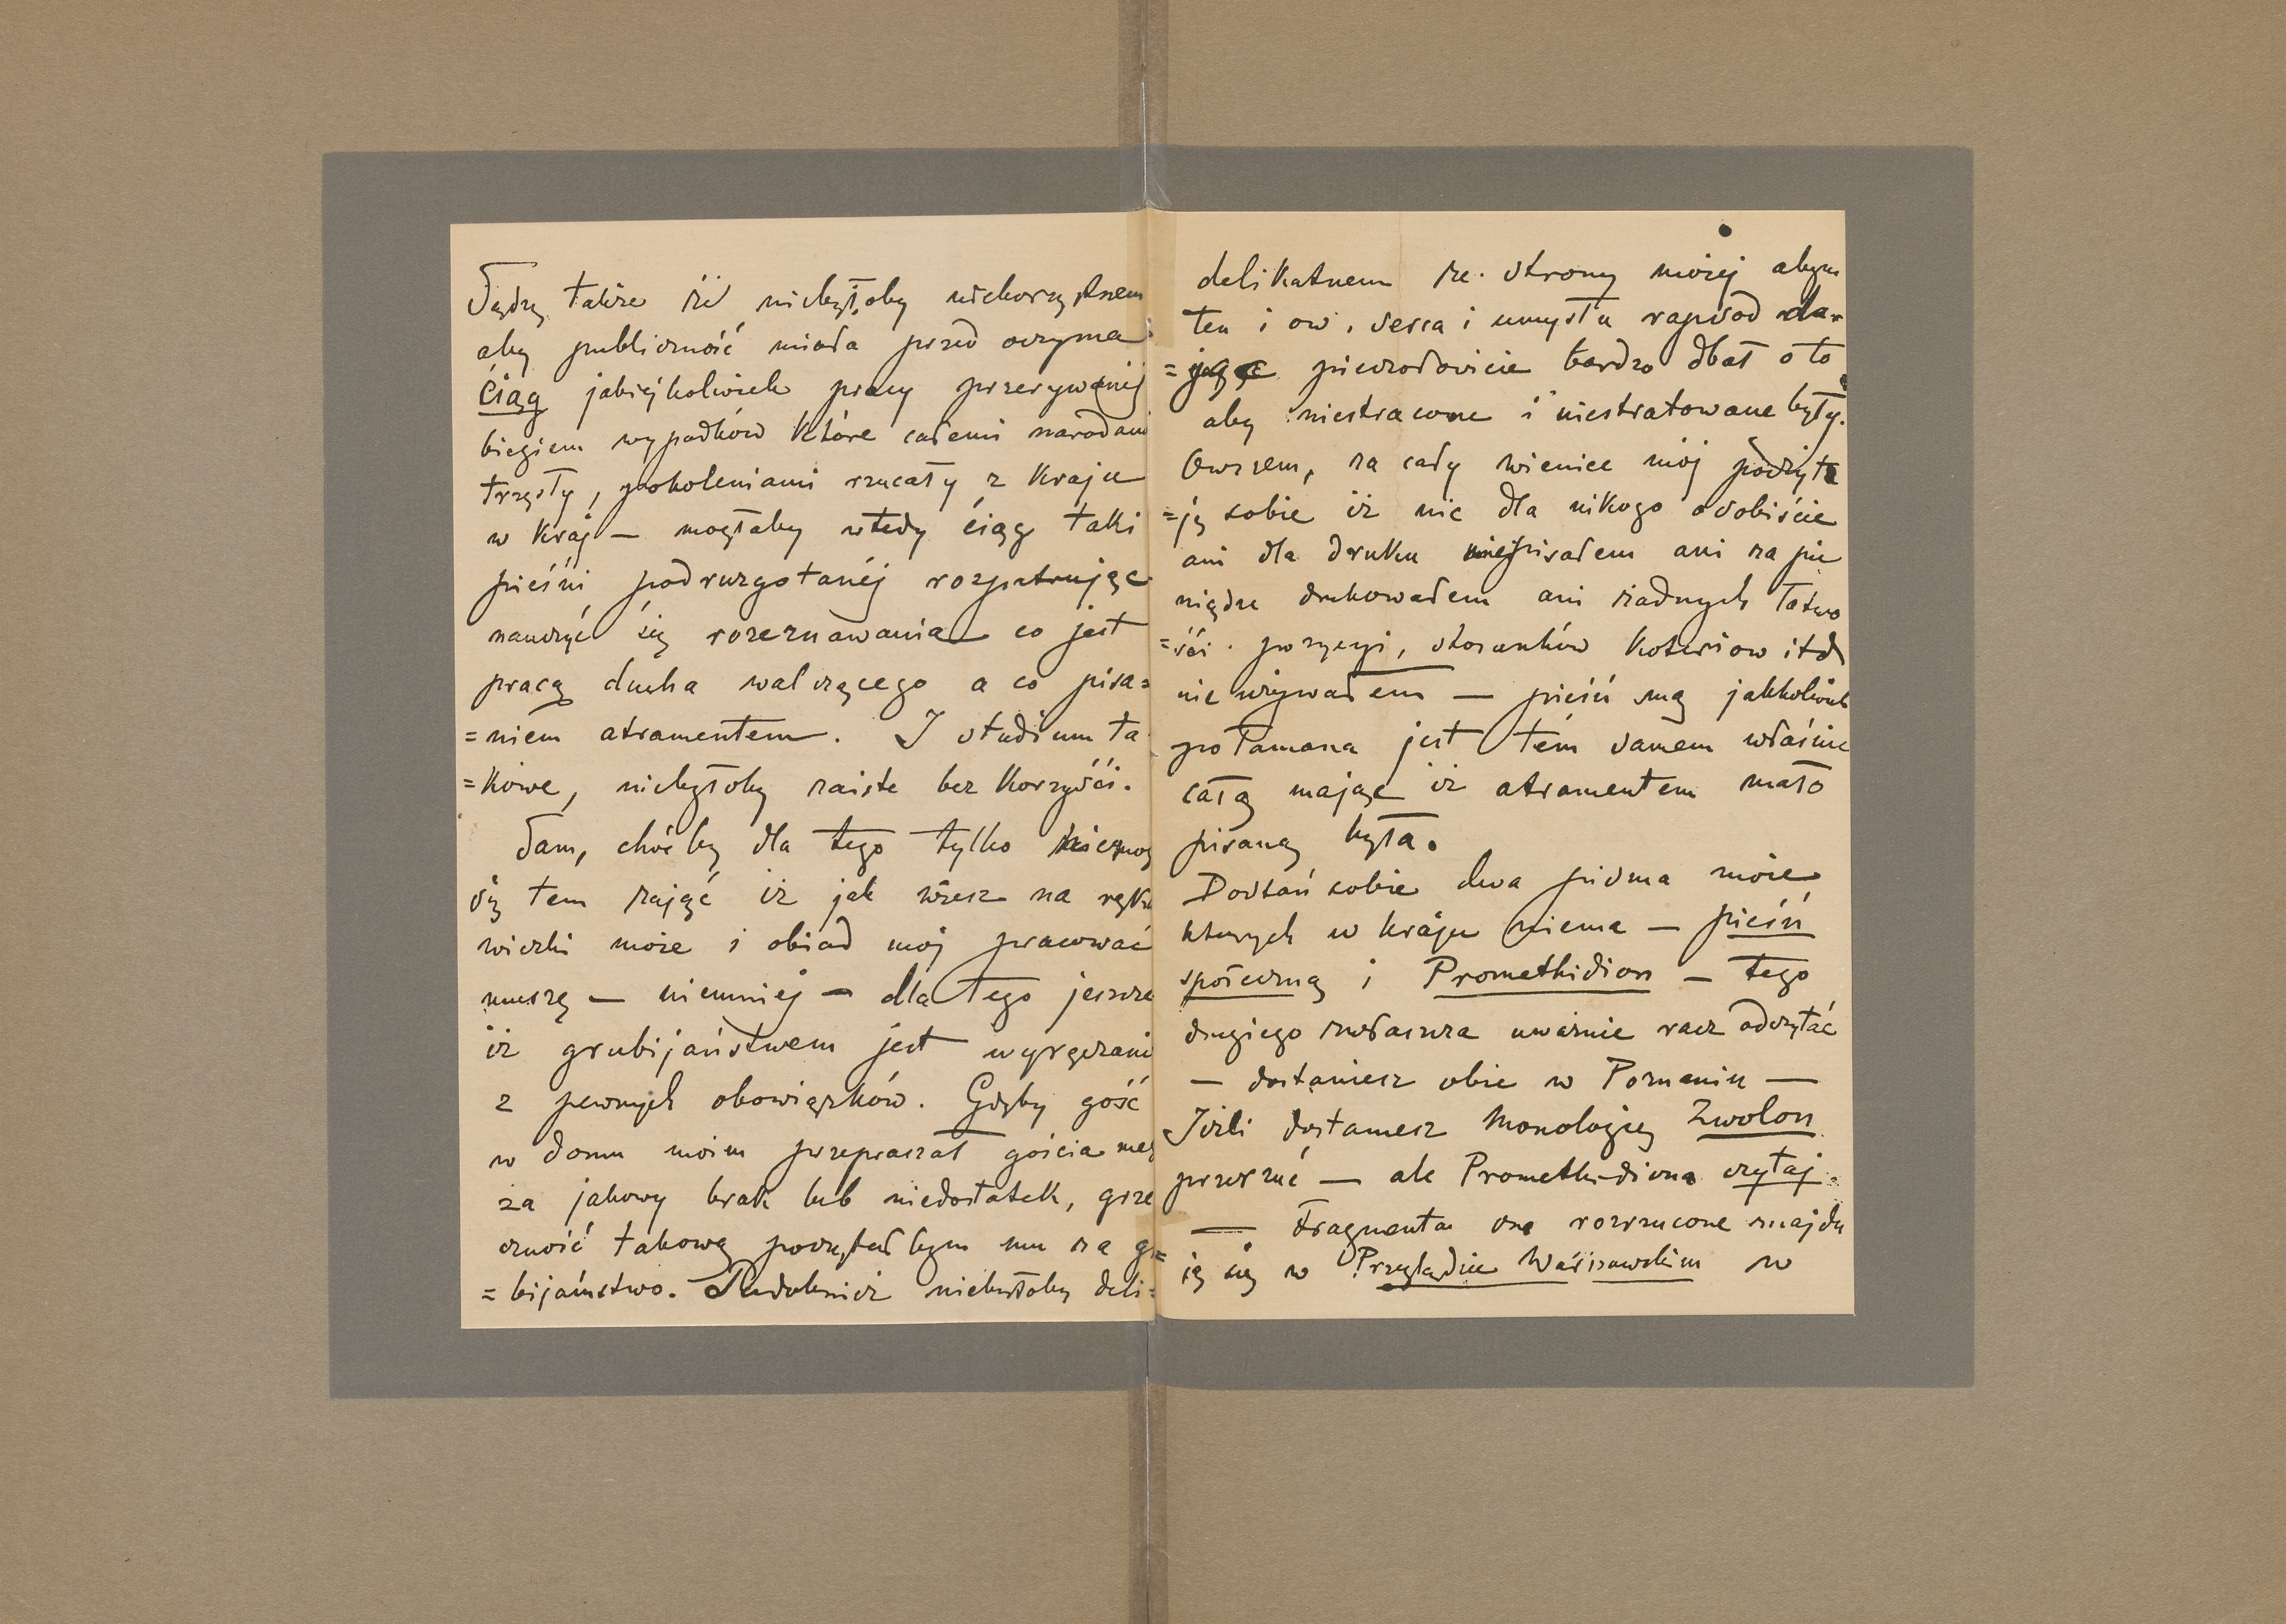 Sądzę także iż niebyłoby niekorzystnem
aby publiczność miała przed oczyma
ciąg jakiéjkolwiek pracy przerywanéj
biegiem wypadków które całemi narodami
trzęsły, pokoleniami rzucały z kraju
w kraj — mogłaby wtedy ciąg taki
pieśni podruzgotanéj rozpatrując
nauczyć się rozeznawania co jest
pracą ducha walczącego a co pisa=
=niem atramentem. I studium ta
=kowe, niebyłoby zaiste bez korzyści.
Sam, choćby dla tego tylko niemogę
się tem zająć iż jak wiesz na ręka
wiczki może i obiad mój pracować
muszę — niemniéj — dla tego jeszcze
iż grubijaństwem jest wyręczanie
z pewnych obowiązków. Gdyby gość
w domu moim przepraszał gościa meg
za jakowy brak lub niedostatek, grze
czność takową poczytałbym mu za gr=
=bijaństwo. Podobnież niebyłoby deli=
delikatnem ze strony mojéj abym
ten i ow, serca i umysłu rapsod da=
=jąc pierwodowicie bardzo dbał o to
aby niestracone i niestratowane były.
Owszem, za cały wieniec mój poczyta
=ję sobie iż nic dla nikogo osobiście
ani dla druku niepisałem ani za pie
niądze drukowałem ani żadnych łatwo
=ści pozycyi, stosunków koteriow itd
nie używałem — pieśń mą jakkolwiek
połamana jest tém samem właśnie
całą mając iż atramentem mało
pisaną była.
Dostań sobie dwa pisma moje
których w kraju niema — pieśń
społeczną i Promethidion — tego
drugiego zwłaszcza uważnie racz odczytać
— dostaniesz obie w Poznaniu —
Jeżli dostaniesz Monologię Zwolon
przerzuć — ale Promethidiona czytaj.
— Fragmenta one rozrzucone znajdu
ją się w Przeglądzie Warszawskim w